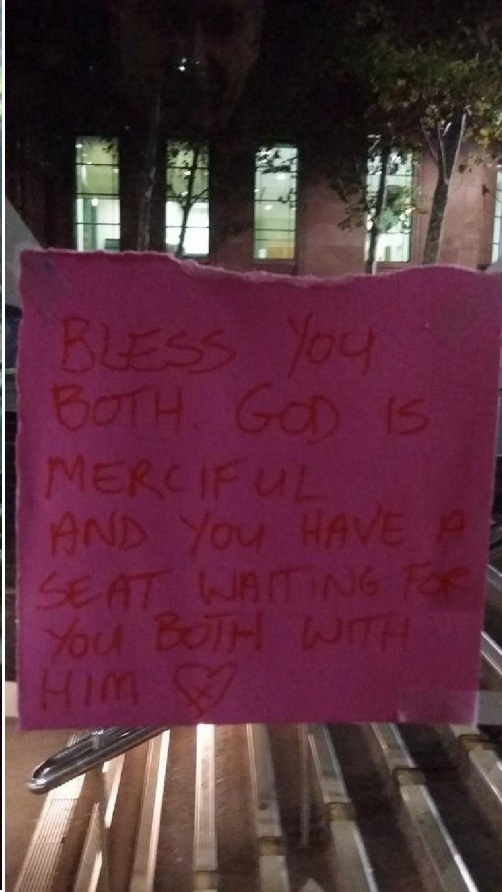 BLESS YOU
BOTH. GOD IS
MERCIFUL
AND YOU HAVE A
SEAT WAITING FOR
YOU BOTH WITH
HIM